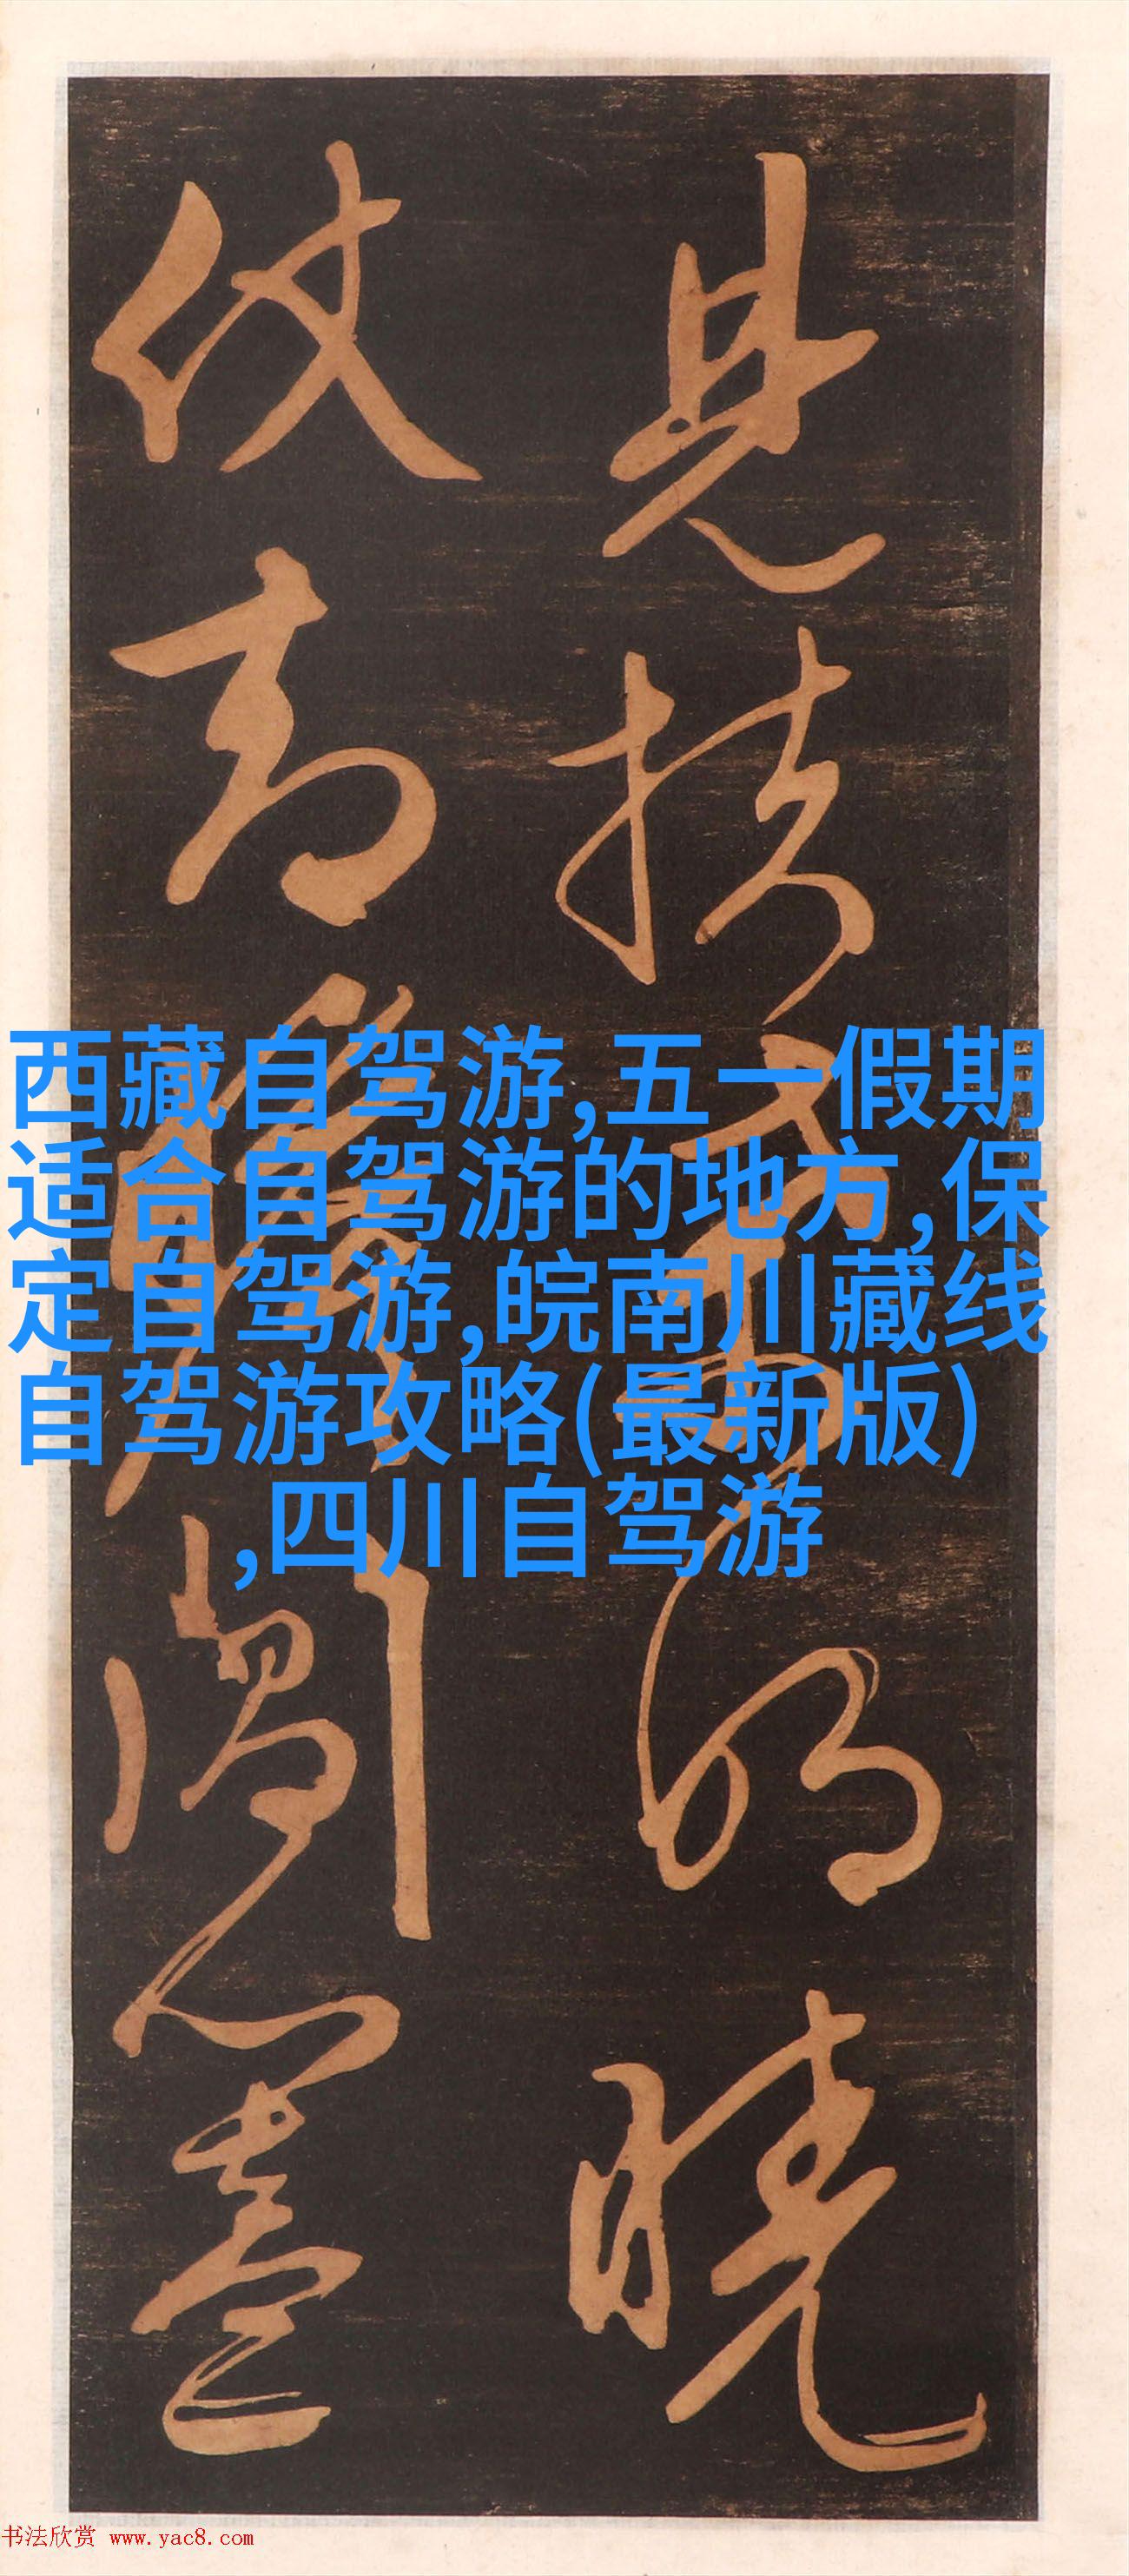 西藏自驾游,五一假期
适合自驾游的地方,保
定自驾游,皖南川藏线
自驾游攻略(最新版)
,四川自驾游
見扶明曉
仗高
书法欣赏 www.yac8.com